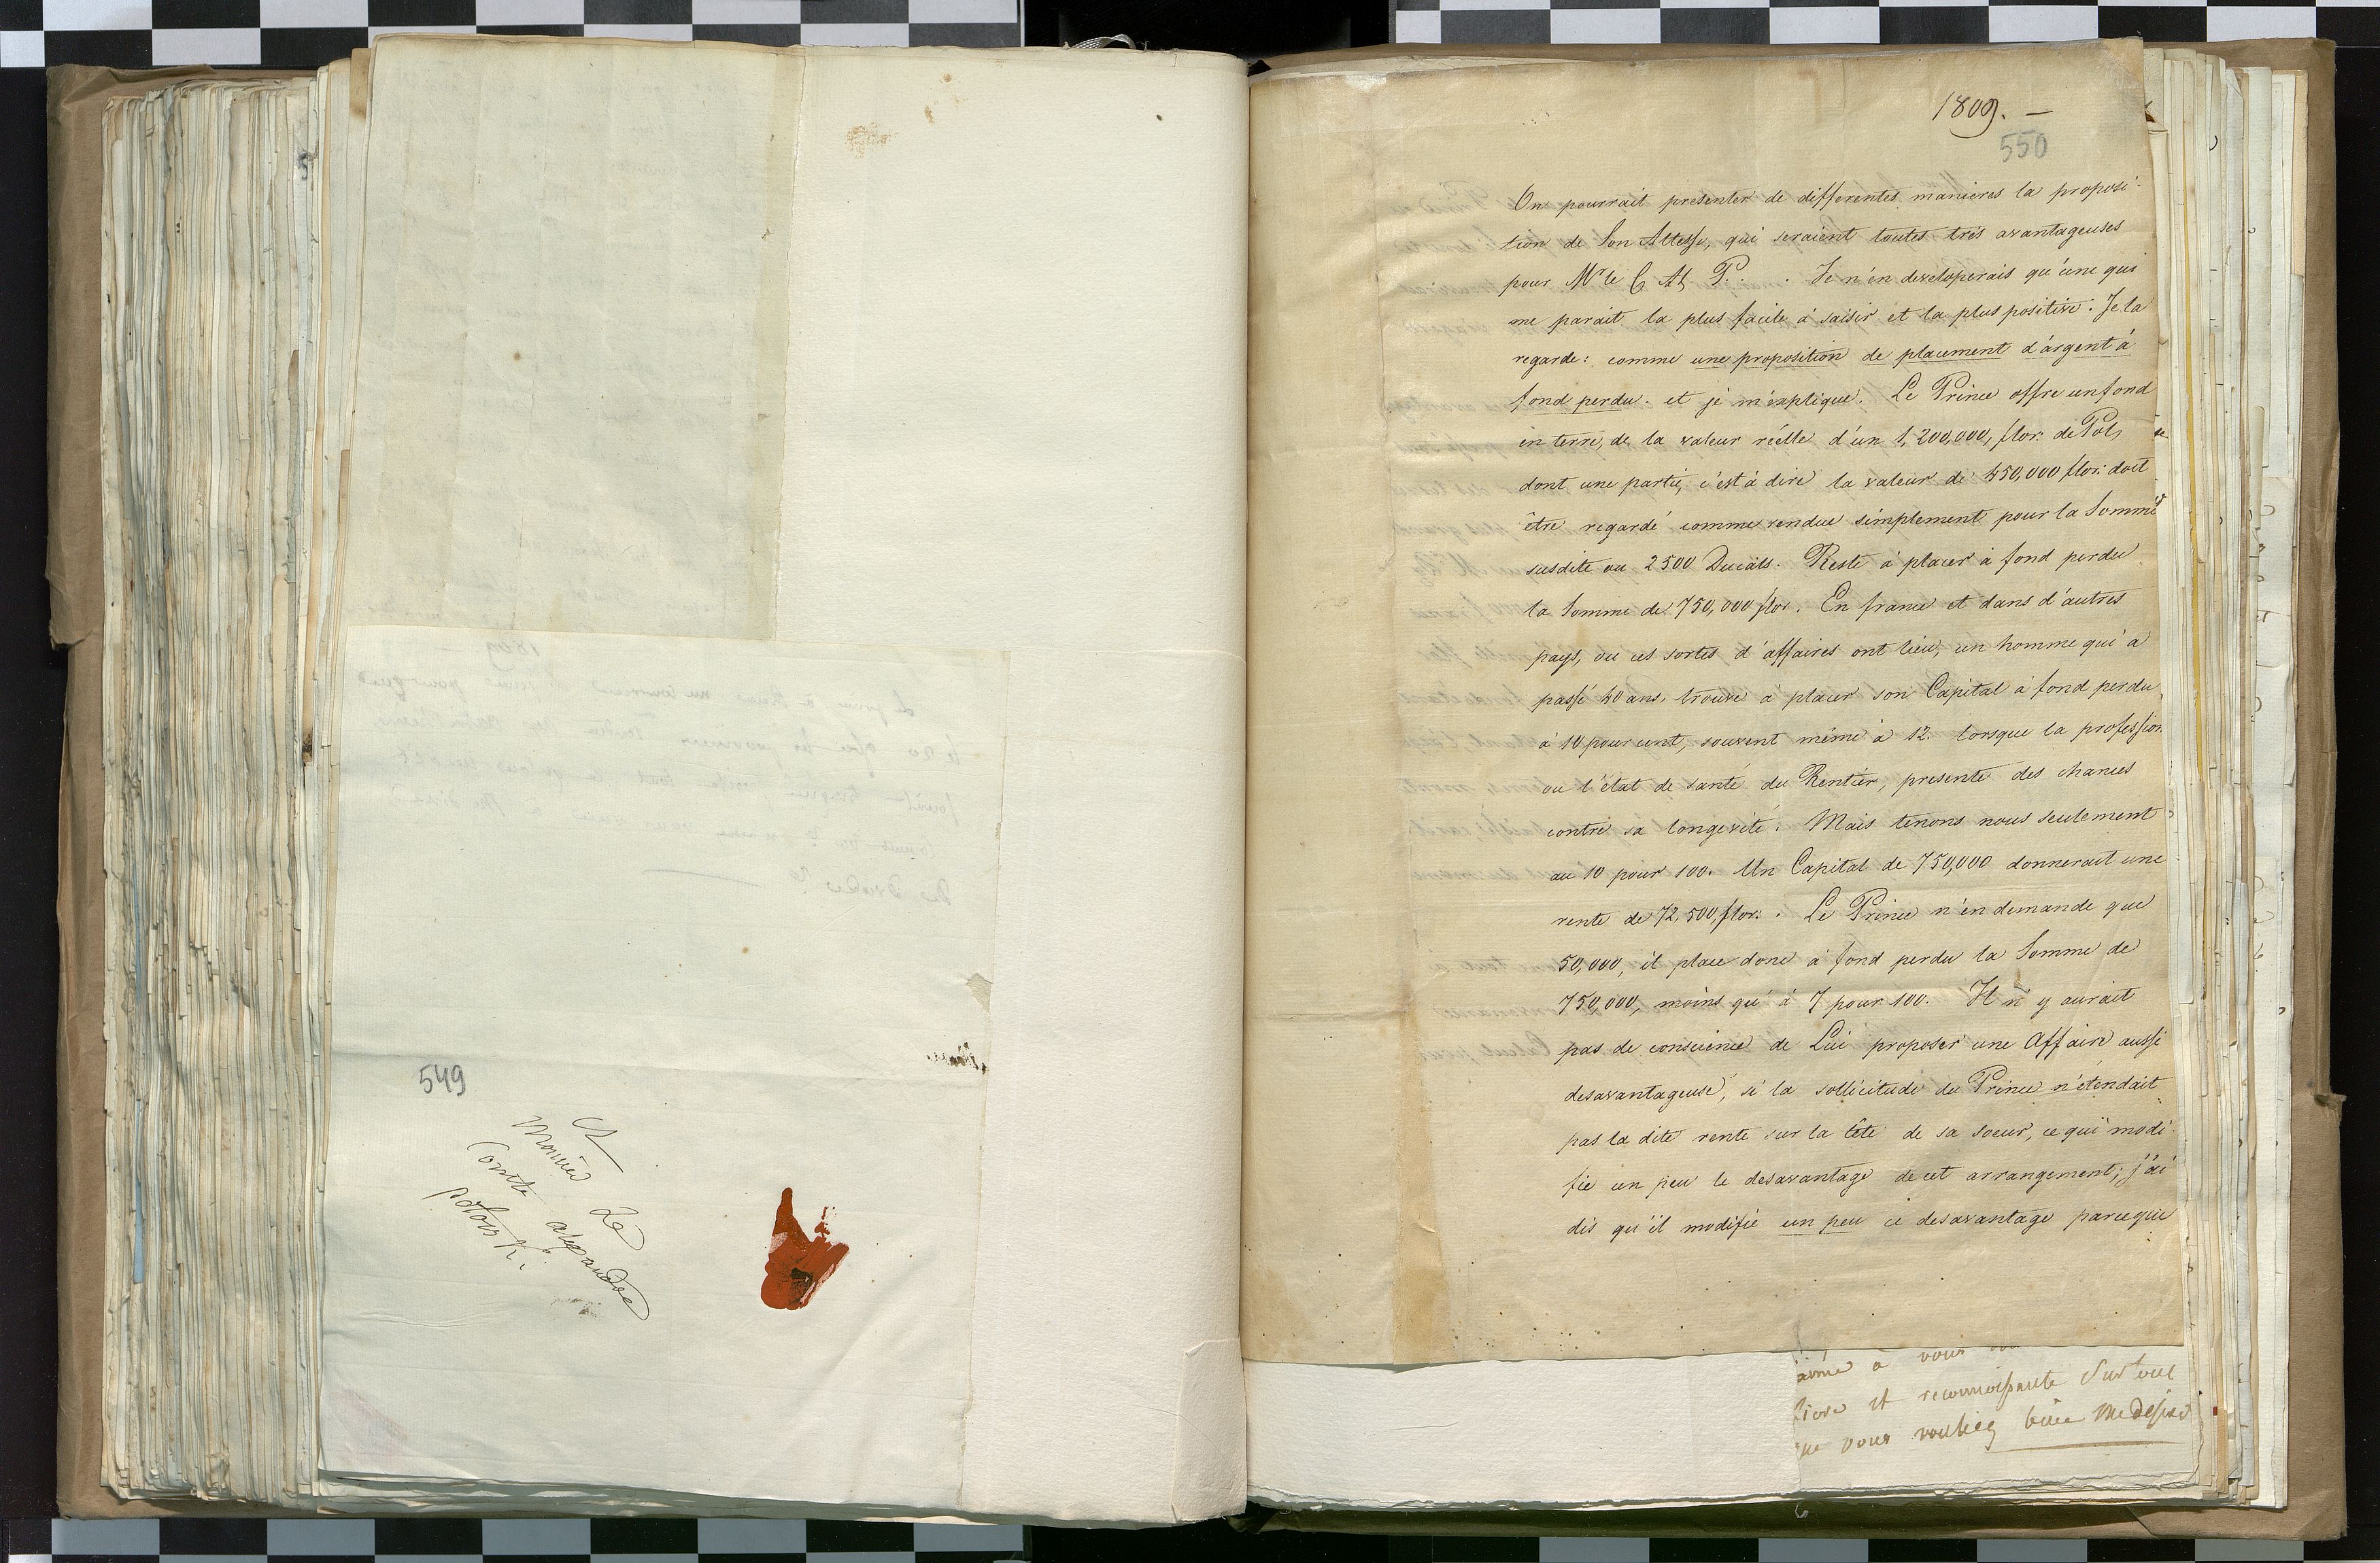 549
A
Monsieur Le
Comte alexandre
Potocki.
1809. —
550
On pourrait presenter de differentes manieres la proposi-
tion de Son Altesse, qui seraient toutes très avantageuses
pour Mr le C Al P. . Je n'en developerais qu'une qui
me parait la plus facile à saisir et la plus positive. Je la
regarde: comme une proposition de placement d'argent à
fond perdu. et je m'explique. Le Prince offre un fond
en terre, de la valeur réelle d'un 1,200,000, flor: de Pol,
dont une partie, c'est à dire la valeur de 450,000 flor: doit
être regardé comme vendue simplement pour la Somme
susdite ou 2500 Ducats. Reste à placer à fond perdu
la Somme de 750,000 flor. En france et dans d'autres
pays, ou ces sortes d'affaires ont lieu, un homme qui a
passé 40 ans, trouve à placer son Capital à fond perdu
à 10 pour cent, souvent même à 12. lorsque la profession
ou l'état de santé du Rentier, presente des chances
contre sa longevité. Mais tenons nous seulement
au 10 pour 100. Un Capital de 750,000 donnerait une
rente de 72,500, flor: . Le Prince n'en demande que
50,000, il place donc à fond perdu la Somme de
750,000, moins qu'à 7 pour 100. Il n'y aurait
pas de conscience de Lui proposer une Affaire aussi
desavantageuse, si la sollicitude du Prince n'étendait
pas la dite rente sur la tête de sa soeur, ce qui modi-
fie un peu le desavantage de cet arrangement; j'ai
dis qu'il modifie un peu ce desavantage parceque
à vous
et reconnoissante Surtout
vous vouliez bien